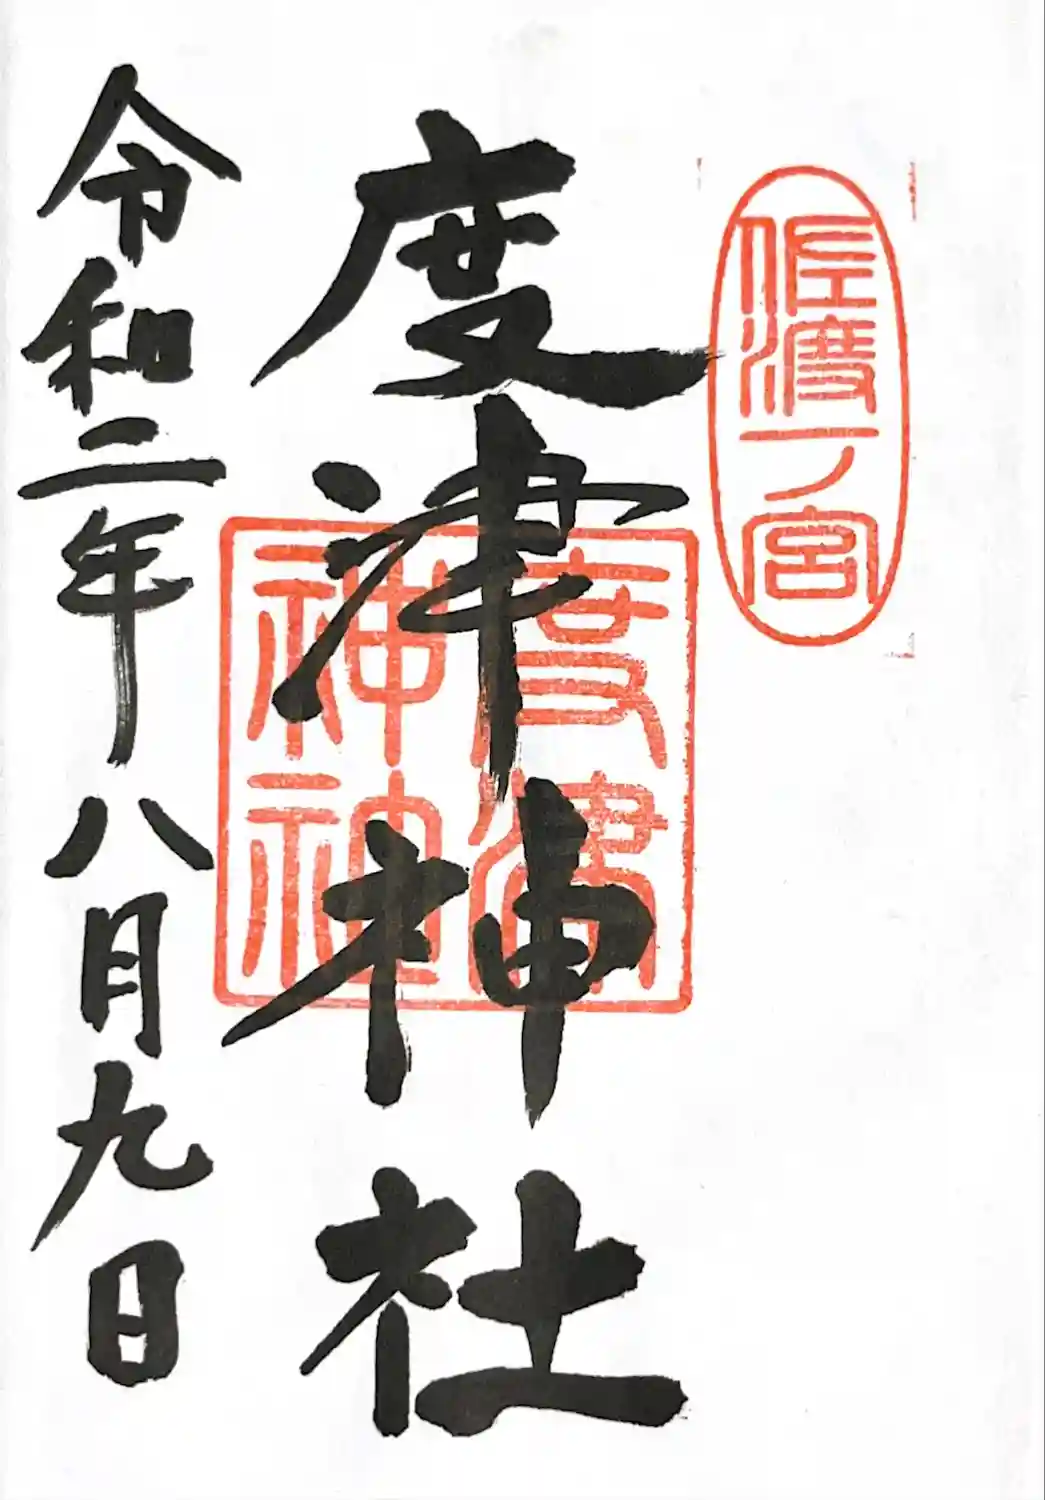 佐渡一ノ宮
度津神社
度津
神社
令和二年八月九日